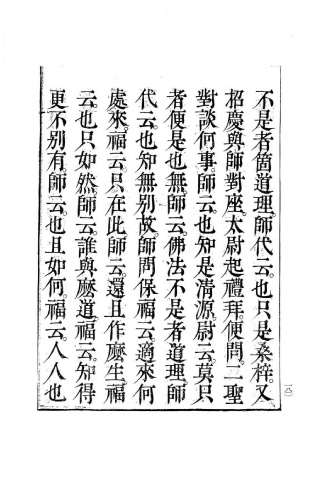 不是者箇道理。師代云。也只是桑梓。又
招慶與師對座。太尉起禮拜便問。二聖
對談何事。師云。也知是清源。尉云。莫只
者便是也無。師云。佛法不是者道理。師
代云。也知無別故。師問保福云。適來何
處來。福云。只在此。師云。還且作麼生。福
云。也只如然。師云。誰與麼道。福云。知得
更不別有。師云。也且如何。福云。人人也